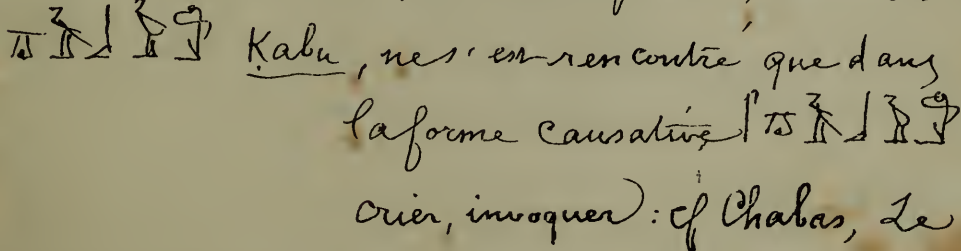 Kabu, ne s'est rencontré que dans
la forme causative
crier, invoquer): cf Chabas, Le